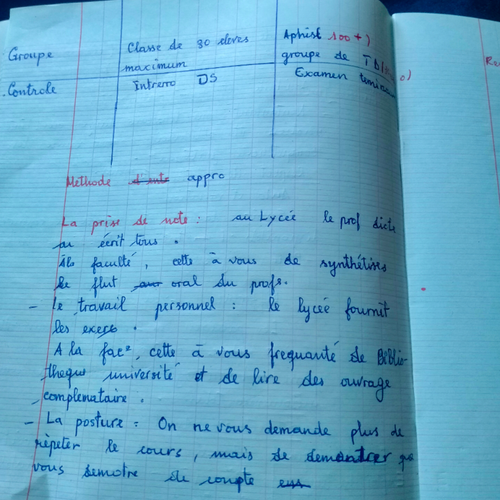 Groupe Classe de 30 eleves maximum Aphist 100+)
groupe de TD
Controle Intrerro DS Examen
Methode appro
La prise de note : au Lycée le prof dicte
ou écrit tous.
faculté, cette à vous de synthétises
le flut oral du profs.
- le travail personnel : le lycée fournit
les exerc.
A la fac, cette à vous frequanté de Biblio-
theque université et de lire des ouvrage
complemataire.
- La posture : On ne vous demande plus de
répeter le cours, mais de demontrer que
vous semotre de compte